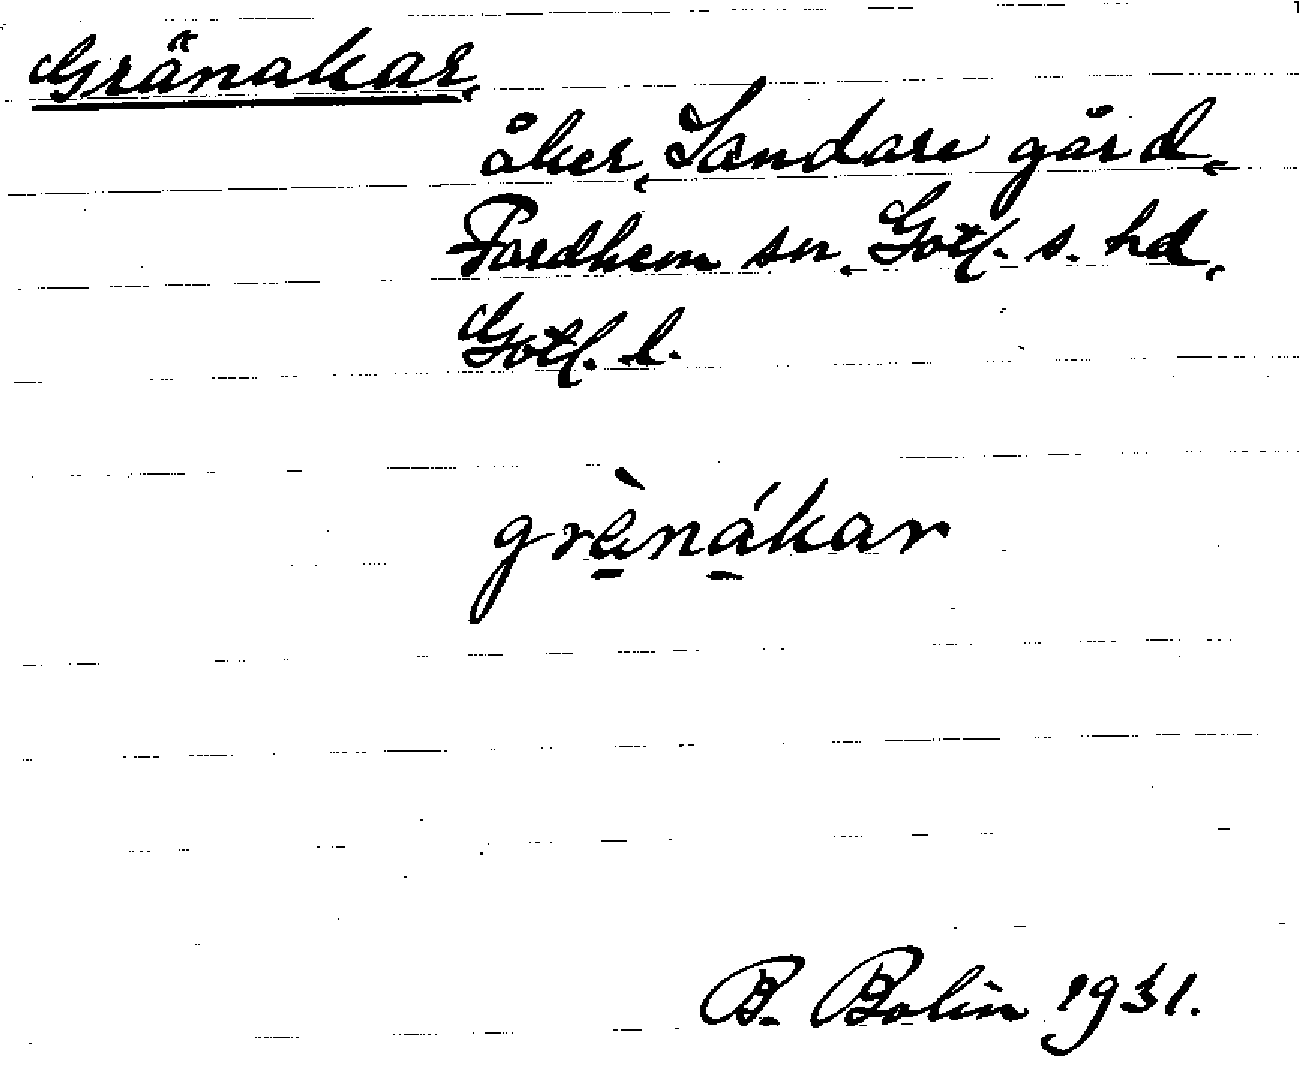 Gränakar,
åker, Sandare gård,
Fardhem sn, Gotl. s. hd,
Gotl. l.
grä̀nákar
B. Bolin 1931.